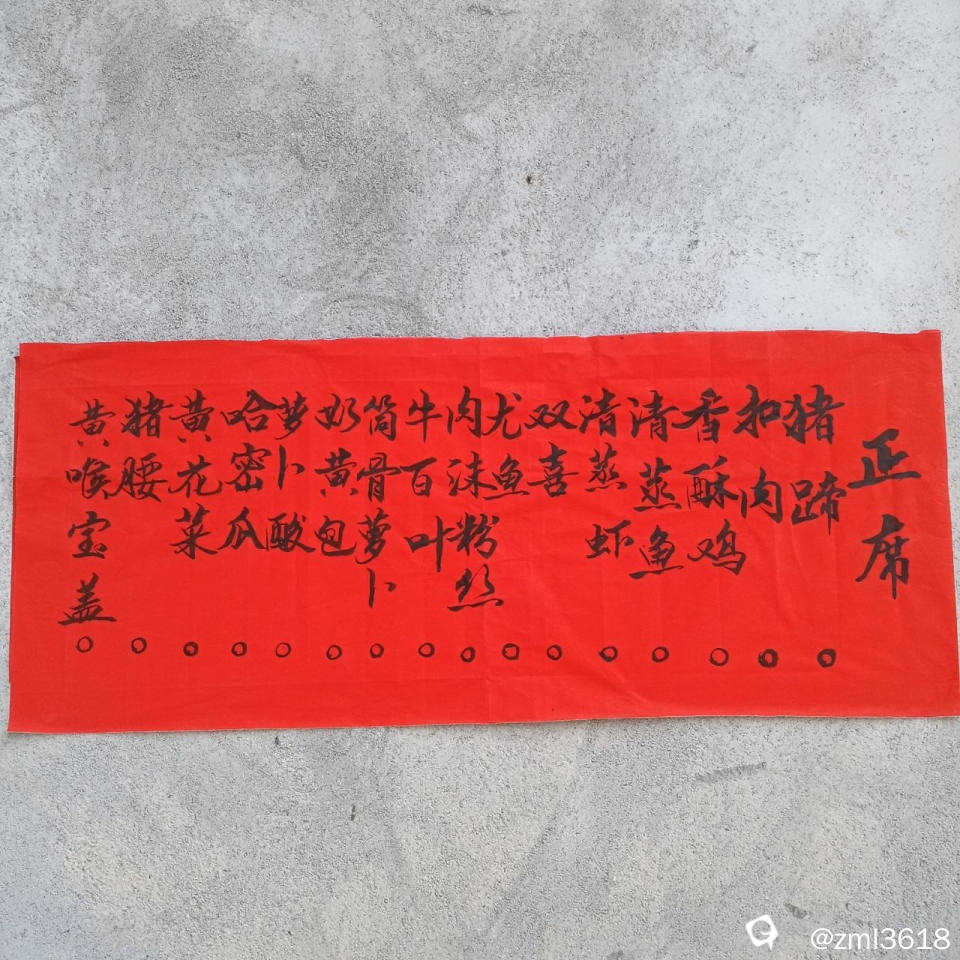 正席
猪蹄
扣肉
香酥鸡
清蒸鱼
清蒸虾
双喜
尤鱼
肉沫粉丝
牛百叶
筒骨萝卜
奶黄包
萝卜酸
哈密瓜
黄花菜
猪腰
黄喉宝盖
@zml3618